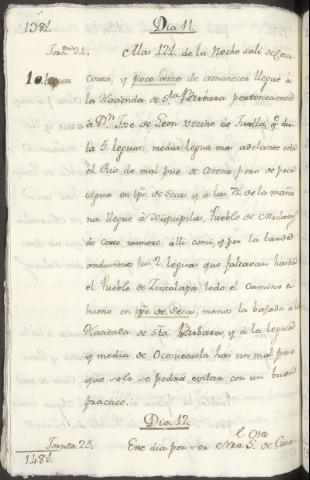 138½. Dia 11.
Jorn.da 24. A las 12½ de la Noche sali de
10 leguas y poco antes de amanecer llegue á
la Hacienda de S.ta Barbara perteneciente
à D.n Jose de Leon vecino de Tuxtla q.e
ta 5. leguas: media legua mas adelante está
el Rio de mal piso de Arena; pero de poca
agua en tpo. de Secas y à las 7½ de la maña
na llegue à Xiquipilas, Pueblo de
de corto numero alli comi, y por la tarde
anduvimos las 2. leguas que faltavan hasta
el Pueblo de Zintalapa todo el camino es
bueno en tpo. de Secas, menos la bajada à la
Hacienda de Sta. Barbara, y à la legua
y media de Ocozucutla hai un mal paso
que solo se podrá evitar con un buen
practico.
Dia 12.
Jornda. 25. Este dia por ser Nra. S.
148½.